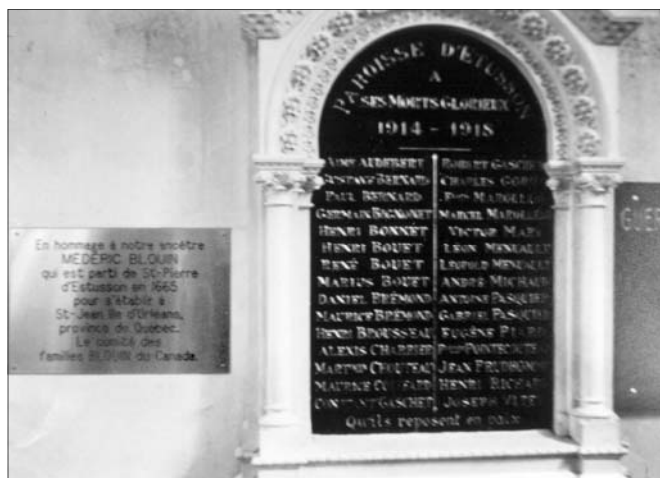 En hommage à notre ancêtre
MÉDÉRIC BLOUIN
qui est parti de St-Pierre
d'Étusson en 1665
pour s'établir à
St-Jean Ile d'Orléans,
province de Québec.
Le comité des
familles BLOUIN du Canada.
PAROISSE D'ETUSSON
A
SES MORTS GLORIEUX
1914 - 1918
AIMÉ AUDEBERT
GUSTAVE BERNARD
PAUL BERNARD
GERMAIN BIGNONET
HENRI BONNET
HENRI BOUET
RENÉ BOUET
MARIUS BOUET
DANIEL BRÉMOND
MAURICE BRÉMOND
HENRI BROUSSEAU
ALEXIS CHARRIER
CHOUTEAU
MAURICE
CONSTANT GASCHET
ROBERT GASCHET
CHARLES
MAROLLEAU
MARCEL MAROLLEAU
VICTOR
LÉON MENUAULT
LÉOPOLD MENUAULT
ANDRÉ MICHAUD
ANTOINE PASQUIER
GABRIEL PASQUIER
EUGÈNE
JEAN PRUDHOMME
HENRI
JOSEPH
Qu'ils reposent en paix